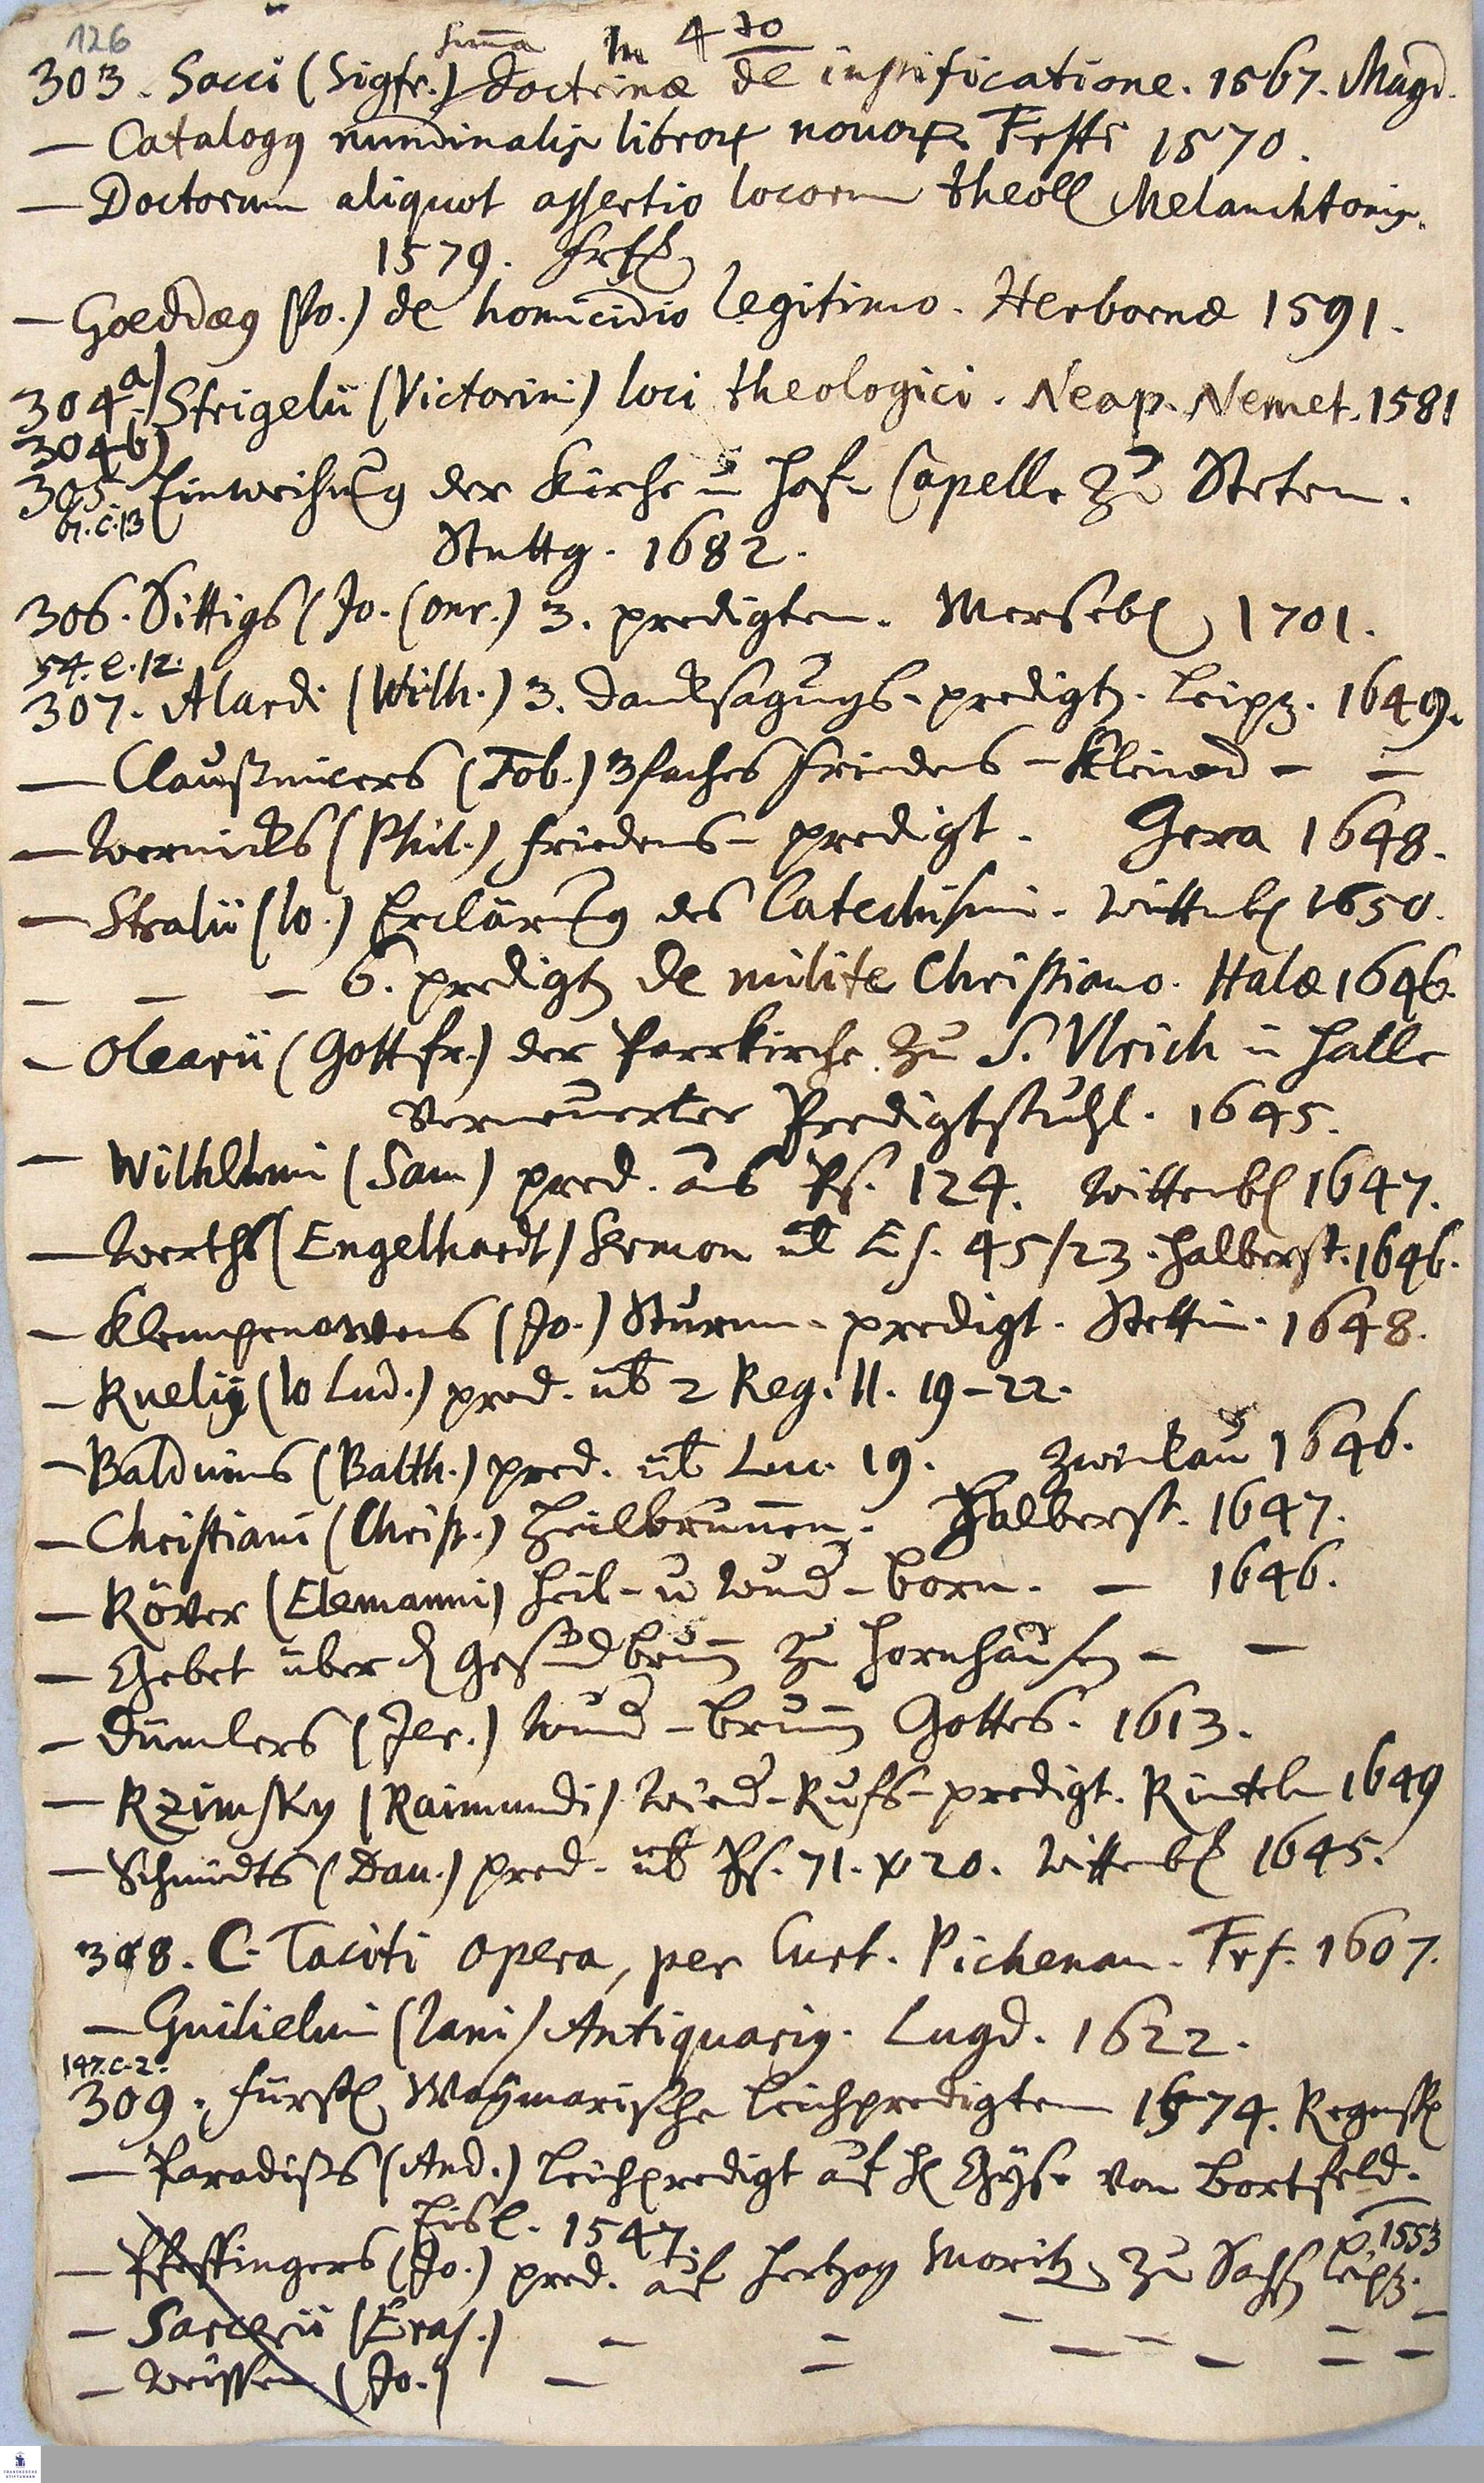 126
In 4to
303. Sacci (Sigfr.) Suma doctrinæ de iustificatione. 1567. Magd.
— Catalogq nundinalis libror novor Frffti 1570.
— Doctorum aliquot assertio locorum theoll Melanchtonis.
1579. Frf
— Goeddæq (Jo.) de homicidio legitimo. Herbornæ 1591.
304a) Strigelii (Victorini) loci theologici. Neap. Nemet. 1581
304b)
305. Einweihung der Kirche u Hof-Capelle zu Steten.
Stuttg. 1682.
306. Sittigs (Jo. Conr.) 3. predigten. Merseb 1701.
54. e. 12.
307. Alardi (Wilh.) 3. Danksagungs-predigt. Leipz. 1649.
— Claußnicers (Tob.) 3faches Friedens-Kleinod — —
— Wernicks (Phil.) Friedens-predigt. Gera 1648.
— Stralii (Jo.) Erclärung des Catechismi. Wittenb 1650.
— — — 6. predigt de milite Christiano. Halæ 1646.
— Olearii (Gottfr.) der Pfarrkirche zu S. Ulrich in Halle
Verneuerter Predigtstuhl. 1645.
— Wilhelmi (Sam) pred. aus Ps. 124. Wittenb 1647.
— Werths (Engelhardt) Sermon üb Es. 45/23. Halberst. 1646.
— Klempenowens (Jo.) Sturm-predigt. Stettin. 1648.
— Ruelii (Jo Lud.) pred. üb 2 Reg. 11. 19-22.
— Balduins (Balth.) pred. üb Luc. 19. Zwickau 1646.
— Christiani (Christ.) Heilbrunnen. Halberst. 1647.
— Röver (Elemanni) Heil- u Wund-born. — 1646.
— Gebet über d Gesundbrun zu Hornhausen — —
— Dümlers (Jer.) Wund-brun Gottes. 1613.
— Rzimsky (Raimundi) Wied-Rufs-predigt. Rinteln 1649
— Schmidts (Dan.) pred. üb Ps. 71. v 20. Wittenb 1645.
308. C. Taciti opera, per Curt. Pichenam. Frf. 1607.
— Guilielmi (Jani) Antiquariq. Lugd. 1622.
147. c. 2.
309. Fürstl Waÿmarische Leichpredigten 1574. Regensp
— Paradiss (And.) Leichpredigt auf H Gÿse von Bortfeld.
Eisl. 1547.
— Pfeffingers (Jo.) pred. auf Hertzog Moritz zu Sachsen Leipz. 1553
— Sarcerii (Eras.) — — — —
— Weissen (Jo.) — — — — — —